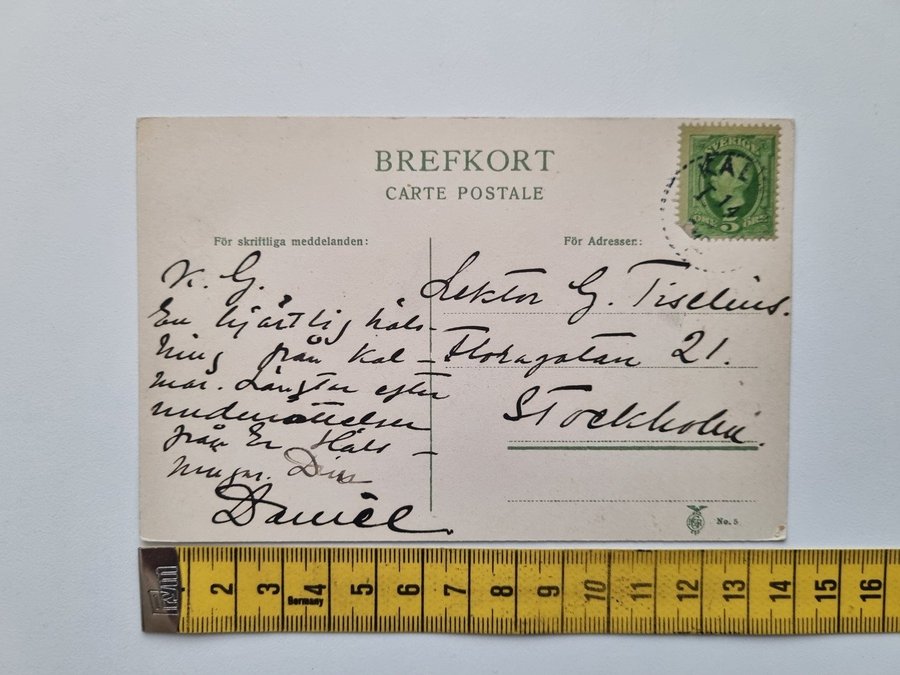 BREFKORT
CARTE POSTALE
För skriftliga meddelanden:
För Adressen:
K. G.
En hjärtlig häls-
ning från Kal-
mar. Längtar efter
underrättelser
från Er. Häls-
ningar. Din
Daniel
Lektor G. Tiselius.
Floragatan 21.
Stockholm.
SVERIGE
KAL
5
No. 5
2 3 4 5 6 7 8 9 10 11 12 13 14 15 16
Germany